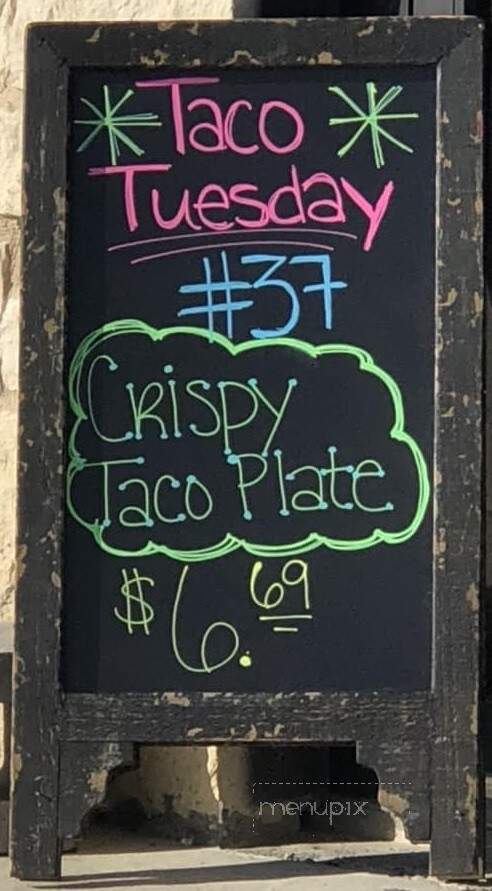 Taco
Tuesday
#37
Crispy
Taco Plate
$6.69
menupix